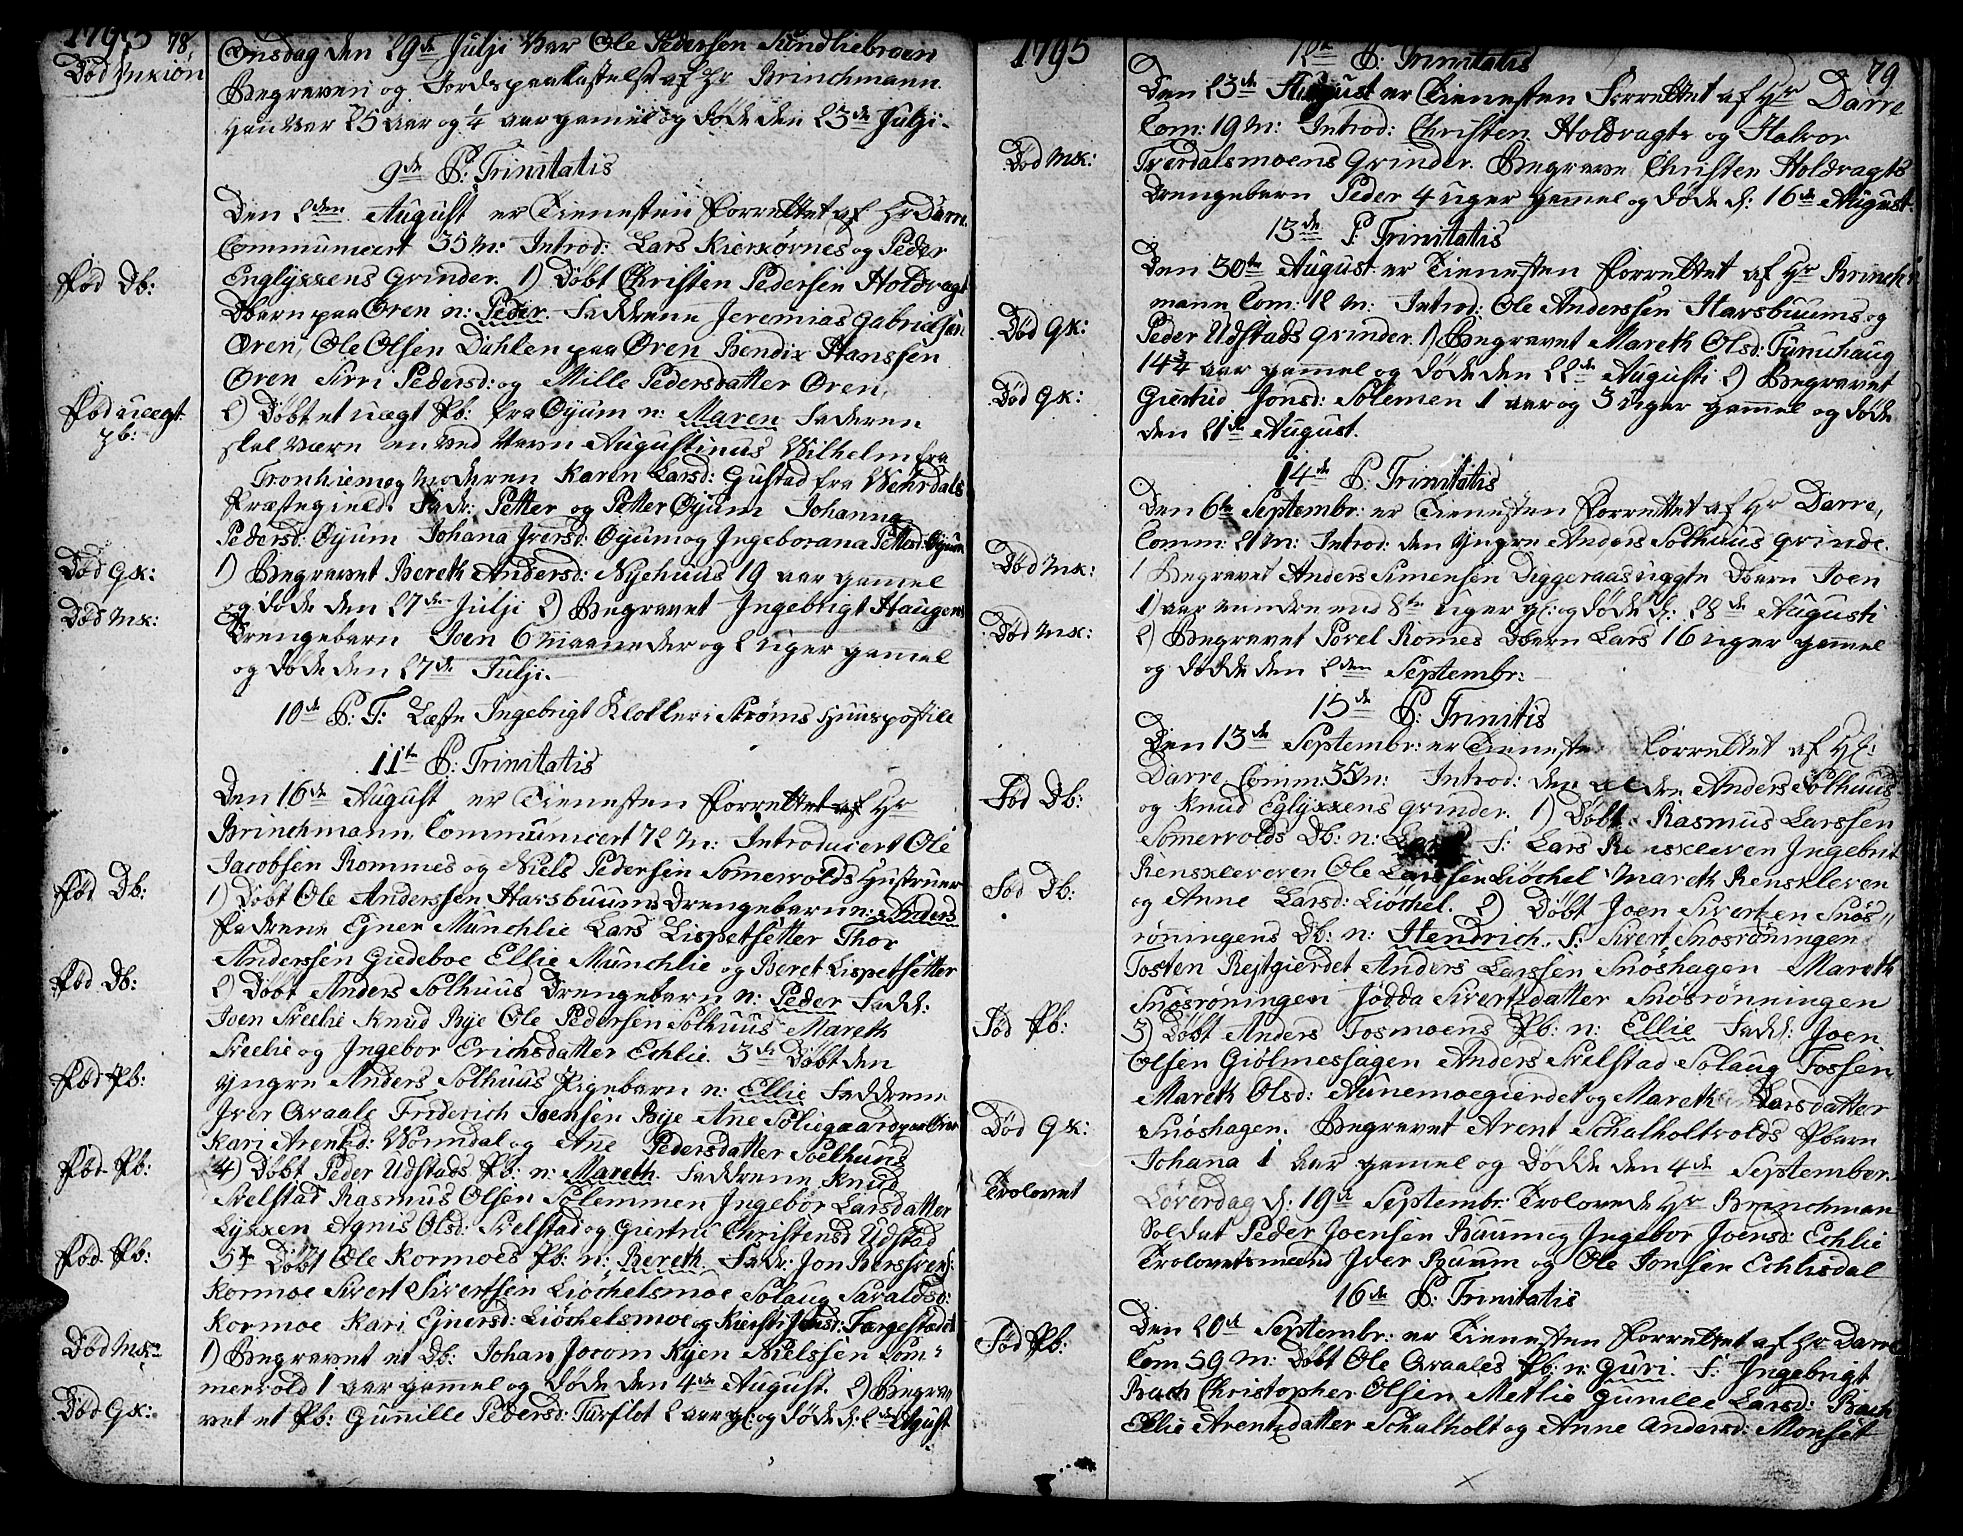 1795 78.
Onsdag den 29de Julji var Ole Pedersen Sundliebroen
Død Mkiøn
Begraven og Jordspaakastelse af Hr Brinchmann.
Han var 25 aar og 1/4 aar gamel og døde den 23de Julji.
9de P: Trinitatis
Den 2den August er Tienesten forrettet af Hr Darre.
Communicert 35 M: Introd: Lars Kierkørnes og Peder
Englyxxens grinder. 1) Døbt Christen Pedersen Holdragt
Fød Db:
Dbarn paa Øren n: Peder. Faddrene Jeremias Gabrielsen
Øren, Ole Olsen Dahlen paa Øren Bendix Hanssen
Øren Sirri Pedersd: og Mille Pedersdatter Øren,
Fød uægt
Pb:
2) Døbt et uægt Pb: fra Øyum n: Maren Faderen
skal værn en ved Navn Augustinus Wilhelm fra
Tronhiem og Moderen Karen Larsd: Gustad fra Wehrdals
Præstegield. Fadr: Petter og Petter Øyum Johanna
Pedersd: Øyum Johana Iversd: Øyum og Ingeborana Pettersd: Øyum
Død Qk:
1) Begravet Bereth Andersd: Nyehuus 19 aar gamel
og døde den 27de Julji 2) Begravet Ingebrigt Haugens
Død Mk:
Drengebarn Joen 6 maaneder og 2 uger gamel
og døde den 27de Julji.
10de P: T: Læste Ingebrigt Klokker i Strøms Huuspostill
11te P: Trinitatis
Den 16de August er Tienesten forrettet af Hr
Brinchmann. Communicert 72 M: Introducert Ole
Jacobsen Rommes og Niels Pedersen Somervolds Hustruer
Fød Db:
1) Døbt Ole Anderssen Harsbuums Drengebarn n: Anders
Fadrene Ejner Munchlie Lars Lispetsetter Thor
Anderssen Giedeboe Ellie Munchlie og Beret Lispetsetter
Fød Db:
2) Døbt Anders Solhuus Drengebarn n: Peder Fadd:
Joen Skeelie Knud Bye Ole Pedersen Solhuus Mareth
Skeelie og Ingebor Erichsdatter Echlie. 3de Døbt den
Fød Pb:
Yngre Anders Solhuus Pigebarn n: Ellie Faddrene
Iver Qvaale Friderich Joensen Bye Ane Soliegaard paa Øren
Kari Arentsd: Wonndal og Ane Pedersdatter Soelhuus
Fød Pb:
4) Døbt Peder Udstads Pb: n: Mareth. Faddrene Knud
Skelstad Rasmus Olsen Solemmen Ingebor Larsdatter
Lyxxen Agnis Olsd: Skelstad og Giertru Christensd Udstad
Fød Pb:
5te Døbt Ole Kormoes Pb: n: Bereth. Fadr: Jon Bersvens:
Kormoe Sivert Sivertsen Liøchelsmoe Solaug Savaldsd:
Kormoe Kari Ejnersd: Liøchelsmoe og Kiersti Jonsd: Fargestædet
Død Mk:
1) Begravet et Db: Johan Jocom Kyen Nielssen Som-
mervold 1 aar gamel og døde den 4de August. 2) Begra-
Død Qk:
vet et Pb: Gunnille Pedersd: Turflot 2 aar gl: og døde d: 2de August
1795
12te P: Trinitatis
79
Den 23de August er Tienesten forrettet af Hr Darre
Com: 19 M: Introd: Christen Holdragts og Halvor
Død Mk:
Trærdalsmoens grinder. Begraven Christen Holdragts
Drengebarn Peder 4 uger gamel og døde d: 16de August.
13de P: Trinitatis
Den 30te August er Tienesten forrettet af Hr Brinch-
mann Com: 12 M: Introd: Ole Anderssen Harsbuums og
Død Qk:
Peder Udstads grinder. 1) Begravet Mareth Olsd: Furuhaug
14 3/4 aar gamel og døde den 22de Augusti 2) Begravet
Død Qk:
Giertrud Jonsd: Solemen 1 aar og 3 uger gammel og døde
den 21de August.
14de P: Trinitatis
Den 6te Septembr: er Tienesten forrettet af Hr Darre,
Comm: 21 M: Introd: den yngre Anders Solhuus grinde.
Død Mk:
1 Begravet Anders Simensen Diggeraas uægte Dbarn Joen
1) aar mindre end 8te uger gl: og døde d: 28de Augusti
Død Mk:
2) Begravet Povel Romes Dbarn Lars 16 uger gamel
og døde den 2den Septembr:
15de P: Trinitis
Den 13de Septembr: er Tieneste forrettet af Hr:
Darre Comm: 35 M: Introd: den ældre Anders Solhuus
Fød Db:
og Knud Eglyxxens grinder. 1) Døbt Rasmus Larssen
Somervolds Db: n: F: Lars Renskleven Ingebrit
Renskleveren Ole Larssen Liøchel Mareth Renskleven
Fød Db:
og Anne Larsd: Liøchel. 2) Døbt Joen Sivertsen Snos-
røningens Db: n: Hendrich. F: Sivert Snosrøningen
Tosten Rejtgierdet Anders Larssen Snøshagen Mareth
Snøsrøningen Jødda Sivertsdatter Snøsrønningen
Fød Pb:
3) Døbt Anders Fosmoens Pb: n: Ellie Fadd: Joen
Olsen Giølmeshagen Anders Skelstad Solaug Fossen
Mareth Olsd: Aunemoegierdet og Mareth Larsdatter
Død Qk:
Snøshagen. Begravet Arent Schalholtvolds Pbarn
Johana 1 aar gamel og Dødde den 4de September.
Trolovet
Løverdag d: 19de Septembr: Trolovede Hr Brinchman
Soldat Peder Joensen Buum og Ingebor Joensd: Echlie
Trolovetsmænd Iver Buum og Ole Jonsen Echlisdal
16de P: Trinitatis
Den 20de Septembr: er Tienesten forrettet af Hr Darre
Fød Pb:
Com 59 M: Døbt Ole Qvaales Pb: n: Guri. F: Ingebrigt
Bach Christopher Olsen Metlie Gunille Larsd: Bach
Ellie Arentsdatter Schalholt og Anne Andersd: Monset